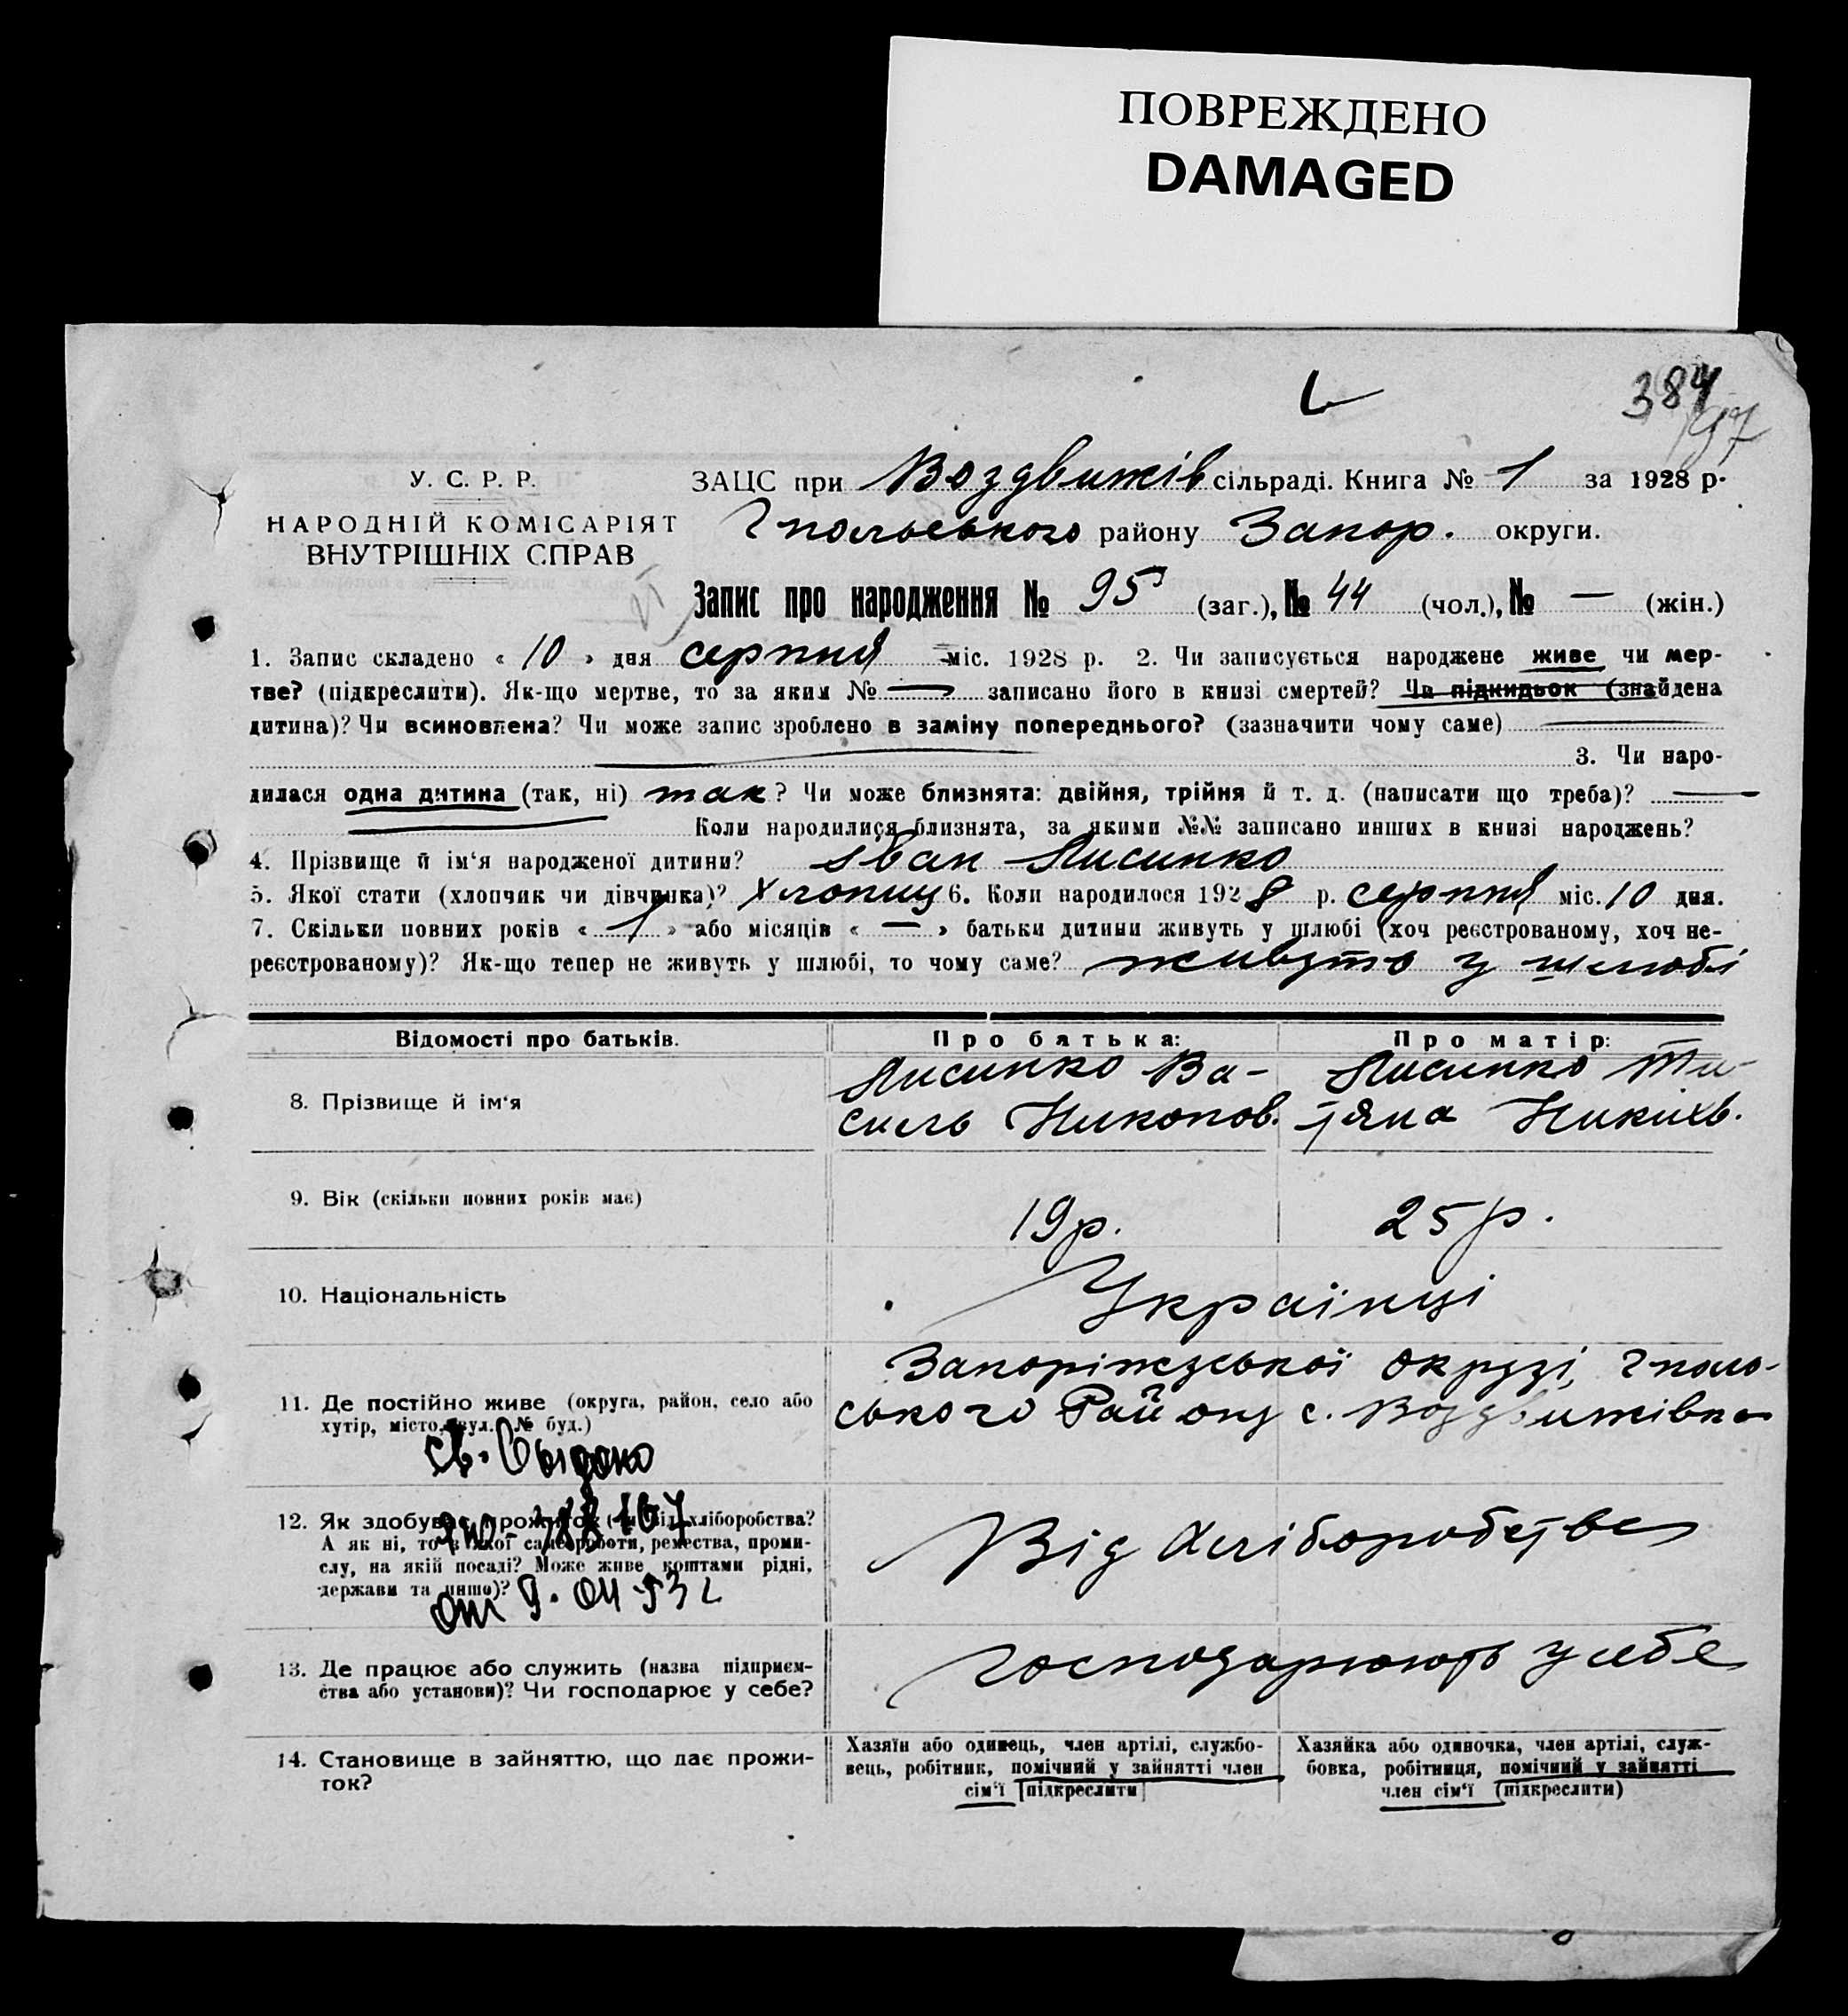 ПОВРЕЖДЕНО
DAMAGED
384
97
У. С. Р. Р.
НАРОДНІЙ КОМІСАРІЯТ
ВНУТРІШНІХ СПРАВ
ЗАЦС при Воздвижів сільраді. Книга № 1 за 1928 р.
Гпольського району Запор. округи.
Запис про народження № 95 (заг.), № 44 (чол.), № — (жін.)
1. Запис складено « 10 » дня серпня міс. 1928 р. 2. Чи записується народжене живе чи мер-
тве? (підкреслити). Як-що мертве, то за яким № — записано його в книзі смертей? Чи підкидьок (знайдена
дитина)? Чи всиновлена? Чи може запис зроблено в заміну попереднього? (зазначити чому саме)
3. Чи наро-
дилася одна дитина (так, ні) так? Чи може близнята: двійня, трійня й т. д. (написати що треба)? —
Коли народилися близнята, за якими №№ записано инших в книзі народжень?
4. Прізвище й ім‘я народженої дитини? Іван Лисинко
5. Якої стати (хлопчик чи дівчинка)? Хлопиц 6. Коли народилося 1928 р. серпня міс. 10 дня.
7. Скільки повних років « 1 » або місяців « — » батьки дитини живуть у шлюбі (хоч реєстрованому, хоч не-
реєстрованому)? Як-що тепер не живуть у шлюбі, то чому саме? живуть у шлюбі
Відомості про батьків. Про батька: Про матір:
8. Прізвище й ім‘я
Лисинко Ва-
силь Никонов.
Лисинко Ти-
тяна Никихв.
9. Вік (скільки повних років має) 19р. 25р.
10. Національність Українці
11. Де постійно живе (округа, район, село або
хутір, місто, вул. № буд.)
Запоріжзської округі, Гполь-
ського Району с. Воздвижівка
Св. Выдано
12. Як здобуває прожиток (чи від хліборобства?
А як ні, то з якої саме роботи, ремества, проми-
слу, на якій посаді? Може живе коштами рідні,
держави та инше)?
Від хліборобства
от 9.
13. Де працює або служить (назва підприєм-
ства або установи)? Чи господарює у себе?
господарюють у себе
14. Становище в зайняттю, що дає прожи-
ток?
Хазяїн або одинець, член артілі, службо-
вець, робітник, помічний у зайнятті член
сім‘ї [підкреслити]
Хазяйка або одиночка, член артілі, служ-
бовка, робітниця, помічний у зайнятті
член сім‘ї (підкреслити)